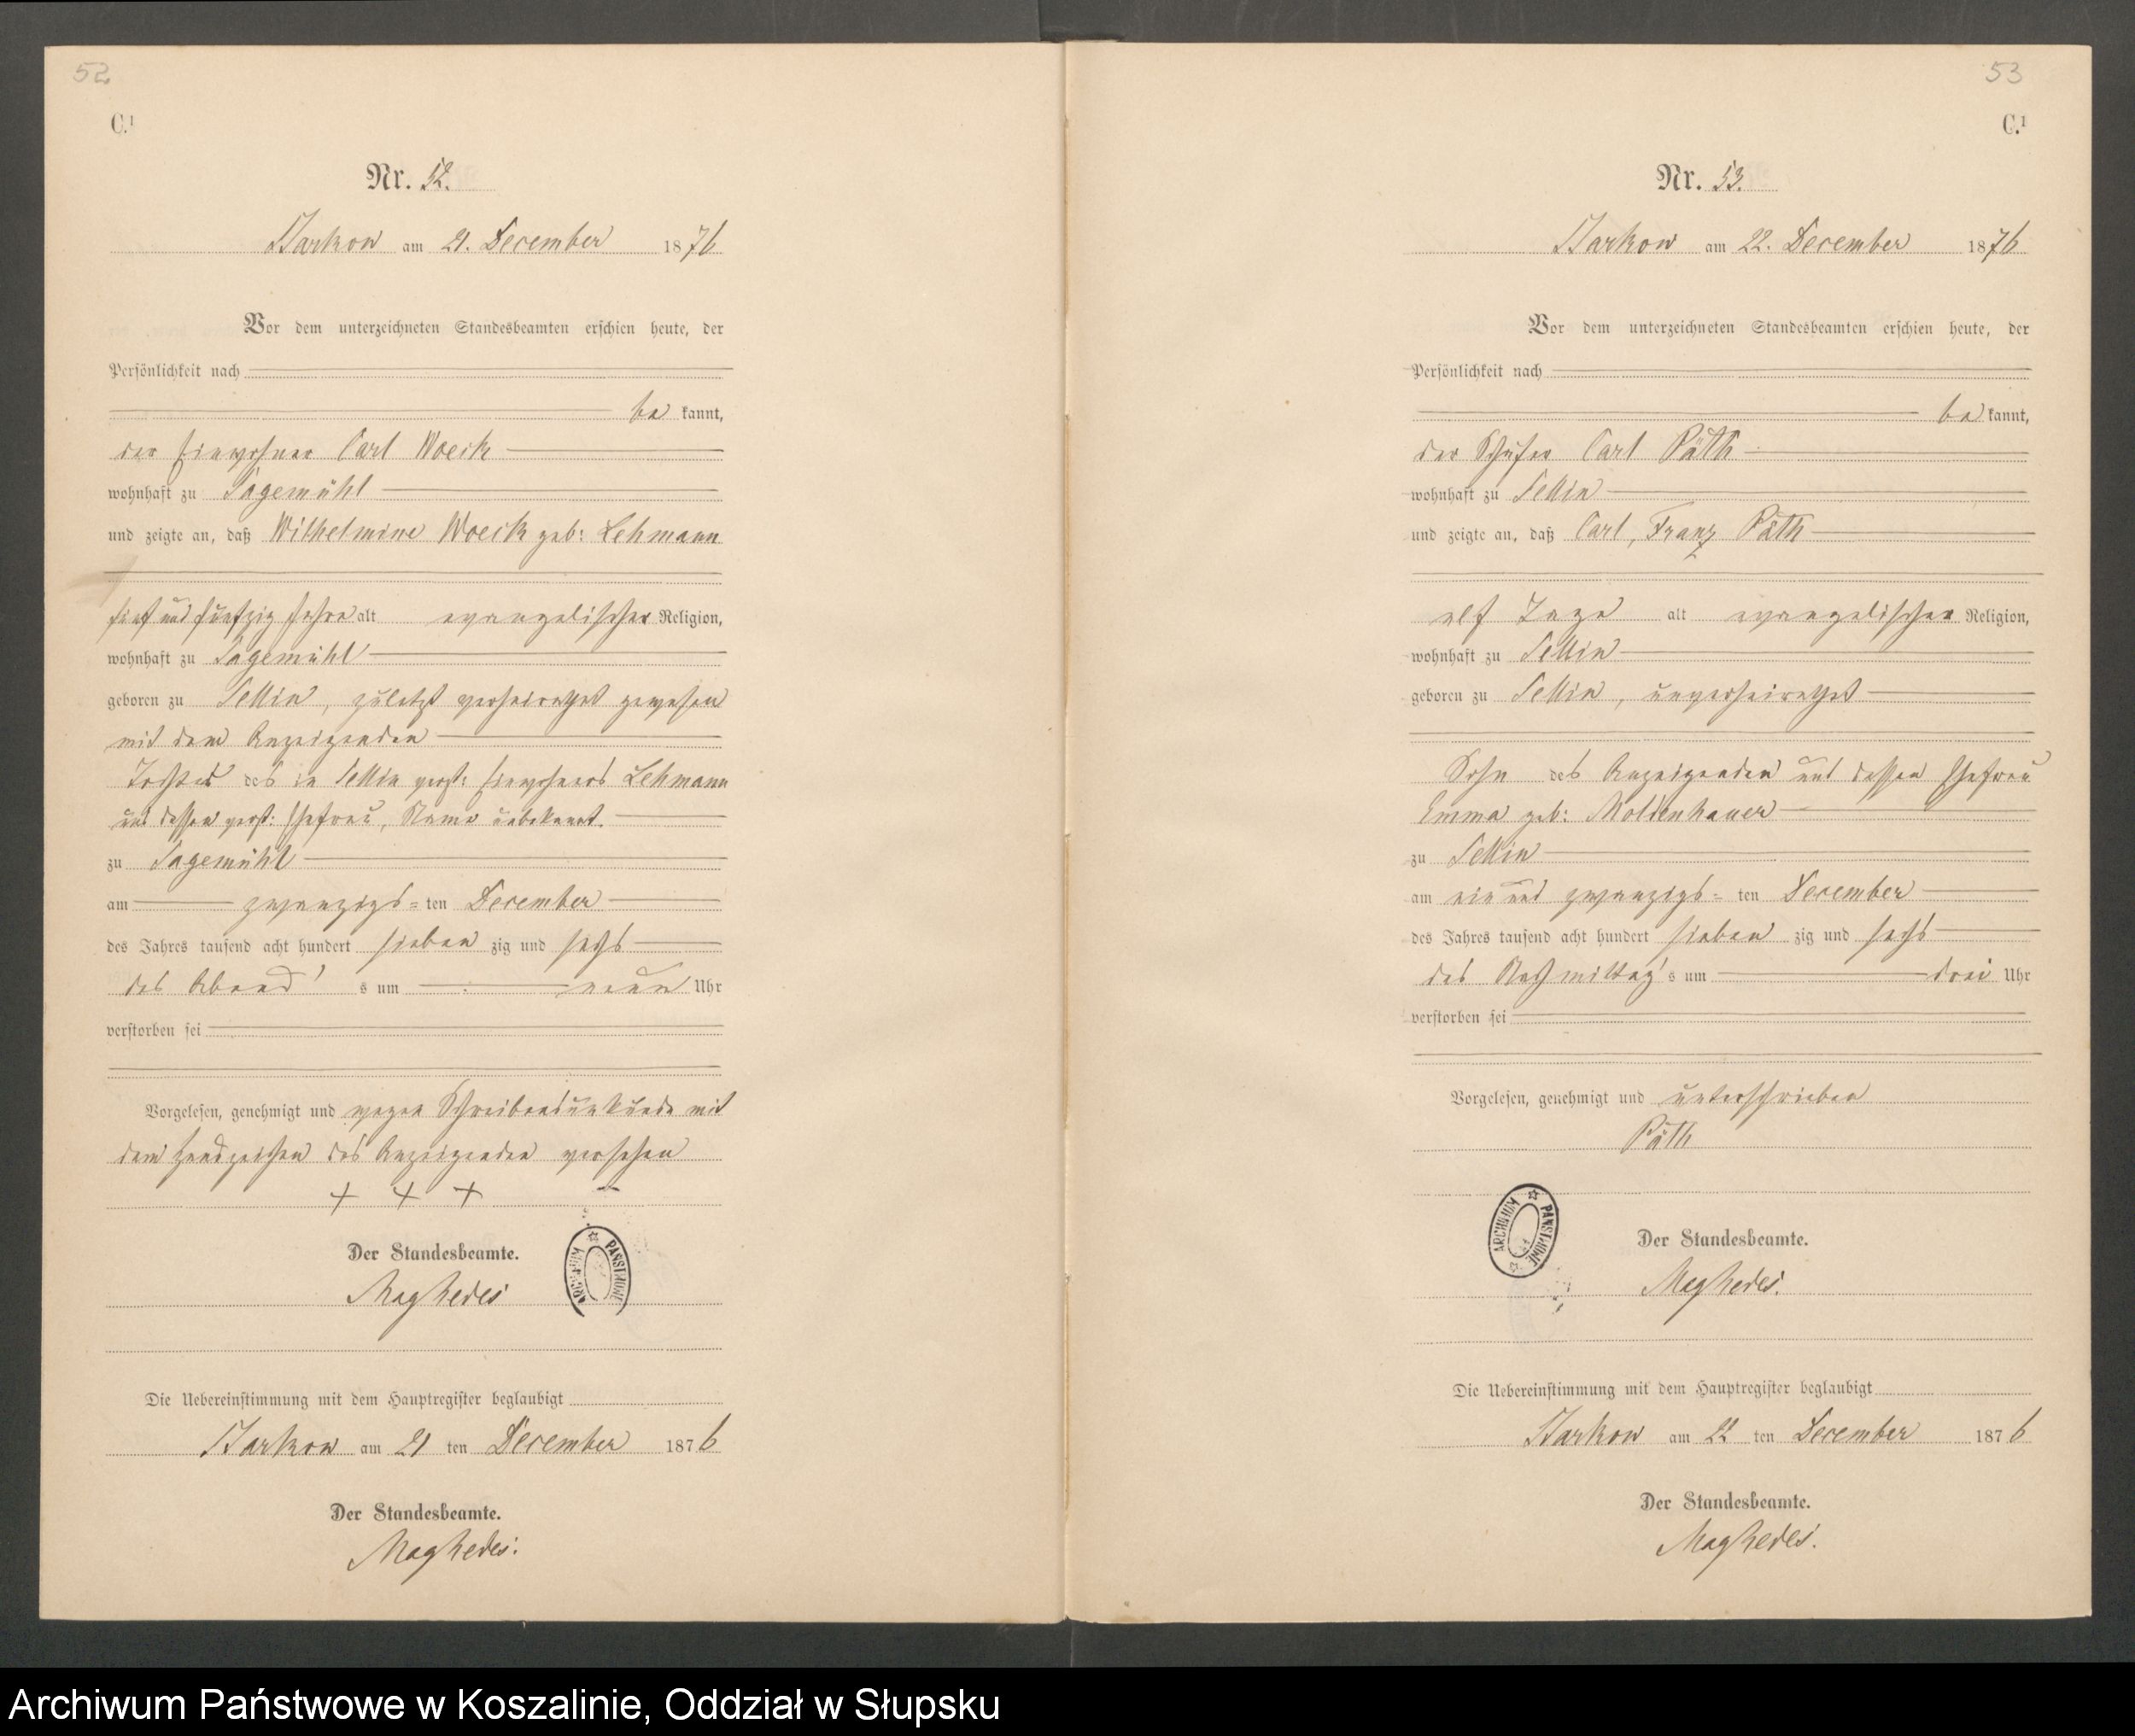 52
C.¹
Nr. 52.
Starkow am 21. December 1876
Vor dem unterzeichneten Standesbeamten erschien heute, der
Persönlichkeit nach
be kannt,
der Einwohner Carl Woeck
wohnhaft zu Sagemühl
und zeigte an, daß Wilhelmine Woeck geb: Lehmann
fünf und fünfzig Jahre alt evangelischer Religion,
wohnhaft zu Sagemühl
geboren zu Sellin, zuletzt verheirathet gewesen
mit dem Anzeigenden
Tochter des in Sellin verst: Einwohners Lehmann
und dessen verst: Ehefrau, Name unbekannt.
zu Sagemühl
am zwanzigs= ten December
des Jahres tausend acht hundert sieben zig und sechs
des Abend's um neun Uhr
verstorben sei
Vorgelesen, genehmigt und wegen Schreibensunkunde mit
dem Handzeichen des Anzeigenden versehen
+ + +
Der Standesbeamte.
ARCHIWUM PAŃSTWOWE
Die Uebereinstimmung mit dem Hauptregister beglaubigt
Starkow am 21 ten December 1876
Der Standesbeamte.
53
C.¹
Nr. 53.
Starkow am 22. December 1876
Vor dem unterzeichneten Standesbeamten erschien heute, der
Persönlichkeit nach
be kannt,
der Schäfer Carl Päth
wohnhaft zu Sellin
und zeigte an, daß Carl, Franz Päth
elf Tage alt evangelischer Religion,
wohnhaft zu Sellin
geboren zu Sellin, unverheirathet
Sohn des Anzeigenden und dessen Ehefrau
Emma geb: Moldenhauer
zu Sellin
am ein und zwanzigs= ten December
des Jahres tausend acht hundert sieben zig und sechs
des Nachmittag's um drei Uhr
verstorben sei
Vorgelesen, genehmigt und unterschrieben
Päth
ARCHIWUM PAŃSTWOWE
Der Standesbeamte.
Die Uebereinstimmung mit dem Hauptregister beglaubigt
Starkow am 22 ten December 1876
Der Standesbeamte.
Archiwum Państwowe w Koszalinie, Oddział w Słupsku